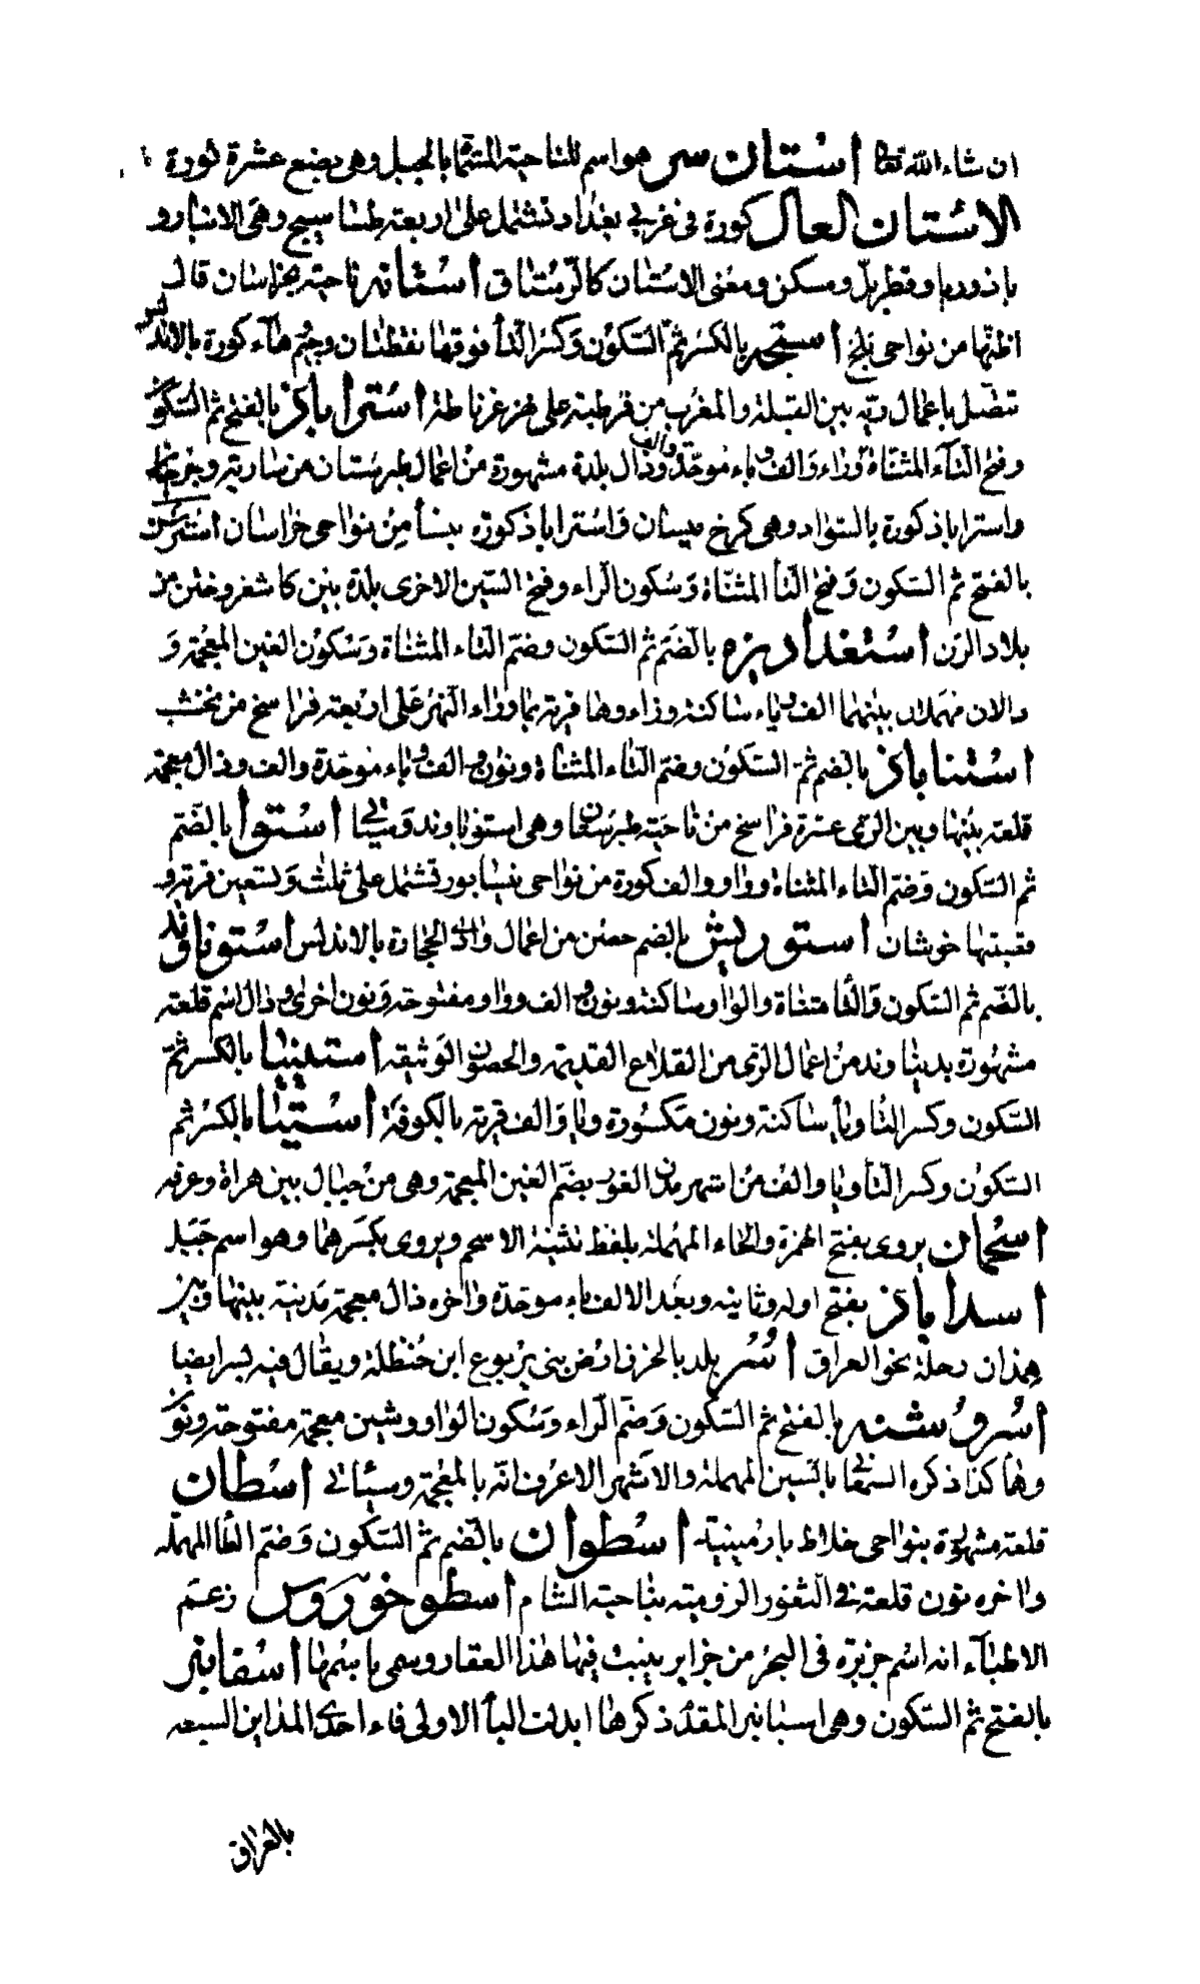 ان شاء الله تعا أستان سر هو اسم للناحية المسمّا بالجبل وهي بضع عشرة كورة
الاستان العال كورة في غربي بغداد تشتمل على اربعة طساسيج وهي الانبار و
بادوريا وقطربل ومسكن ومعنى الاستان كالرستاق أستانه ناحية بخراسان قال
اظنها من نواحي بلخ أستجه بالكسر ثم السكون وكسر التأ فوقها نقطتان وجيم هاء كورة بالاندلس
تتصل باعمال ريه بين القبلة والمغرب من قرطبة على نهر غرناطة أستراباذ بالفتح ثم السكون
وفتح التآء المثناة وراء والف وباء موحدة والف وذال بلدة مشهورة من اعمال طبرستان من سارية وجرجان
واستراباذ كورة بالسواد وهي كرخ ميسان واستراباذ كورة بنسأ من نواحي خراسان استرسن
بالفتح ثم السكون وفتح التأ المثناة وسكون الراء وفتح السين الاخرى بلدة بين كاشغر وختن من
بلاد الرن أستغداديزه بالضم ثم السكون وضم التاء المثناة وسكون الغين المعجمة و
دالان مهملان بينهما الف وياء ساكنة وزاء وها قرية بما وراء النهر على اربعة فراسخ من نخشب
أستناباذ بالضم ثم السكون وضم التاء المثناة ونون والف وباء موحدة والف وذال معجمة
قلعة بينها وبين الري عشرة فراسخ من ناحية طبرستان وهي استوناوند وسياتي أستوا بالضم
ثم السكون وضم التاء المثناة وواو والف كورة من نواحي نيسابور تشتمل على ثلث وتسعين قرية و
قصبتها خوشان أستوريش بالضم حصن من اعمال وادي الحجارة بالاندلس أستوناوند
بالضم ثم السكون والتا مثناة والواو ساكنة ونون والف وواو مفتوحة ونون اخرى وذال اسم قلعة
مشهورة بدنباوند من اعمال الري من القلاع القديمة والحصون الوثيقه أستينيا بالكسر ثم
السكون وكسر التا ويأ ساكنة ونون مكسورة ويا والف قرية بالكوفة أستيا بالكسر ثم
السكون وكسر التأ ويا والف من اشهر مدن الغور بضم الغين المعجمة وهي من جبال بين هراة وغزنه
أسحمان يروى بفتح الهمزة والحاء المهملة بلفظ تثنية الاسحم ويروى بكسرهما وهو اسم جبل
أسداباذ بفتح اوله وثانيه وبعد الالف باء موحدة واخره ذال معجمة مدينة بينها وبين
همذان رحلة نحو العراق أسر بلد بالحزن ارض بني يربوع ابن حنظلة ويقال فيه يسر ايضا
أسروشنه بالفتح ثم السكون وضم الراء وسكون الواو وشين معجمة مفتوحة ونون
وها كذا ذكره السمعا بالسين المهملة والاشهر الاعرف انه بالمعجمة وسياتي أسطان
قلعة مشهورة بنواحي خلاط بارمينية أسطوان بالضم ثم السكون وضم الطا المهملة
واخره نون قلعة في الثغور الرومية بناحية الشام أسطوخودوس زعم
الاطباء انه اسم جزيرة في البحر من جزاير ينبت فيها هذا العقار وسمي باسمها أسفانبر
بالفتح ثم السكون وهي اسبانبر المقدم ذكرها ابدلت البأ الاولى فاء احدى المداين السبعه
بالعراق